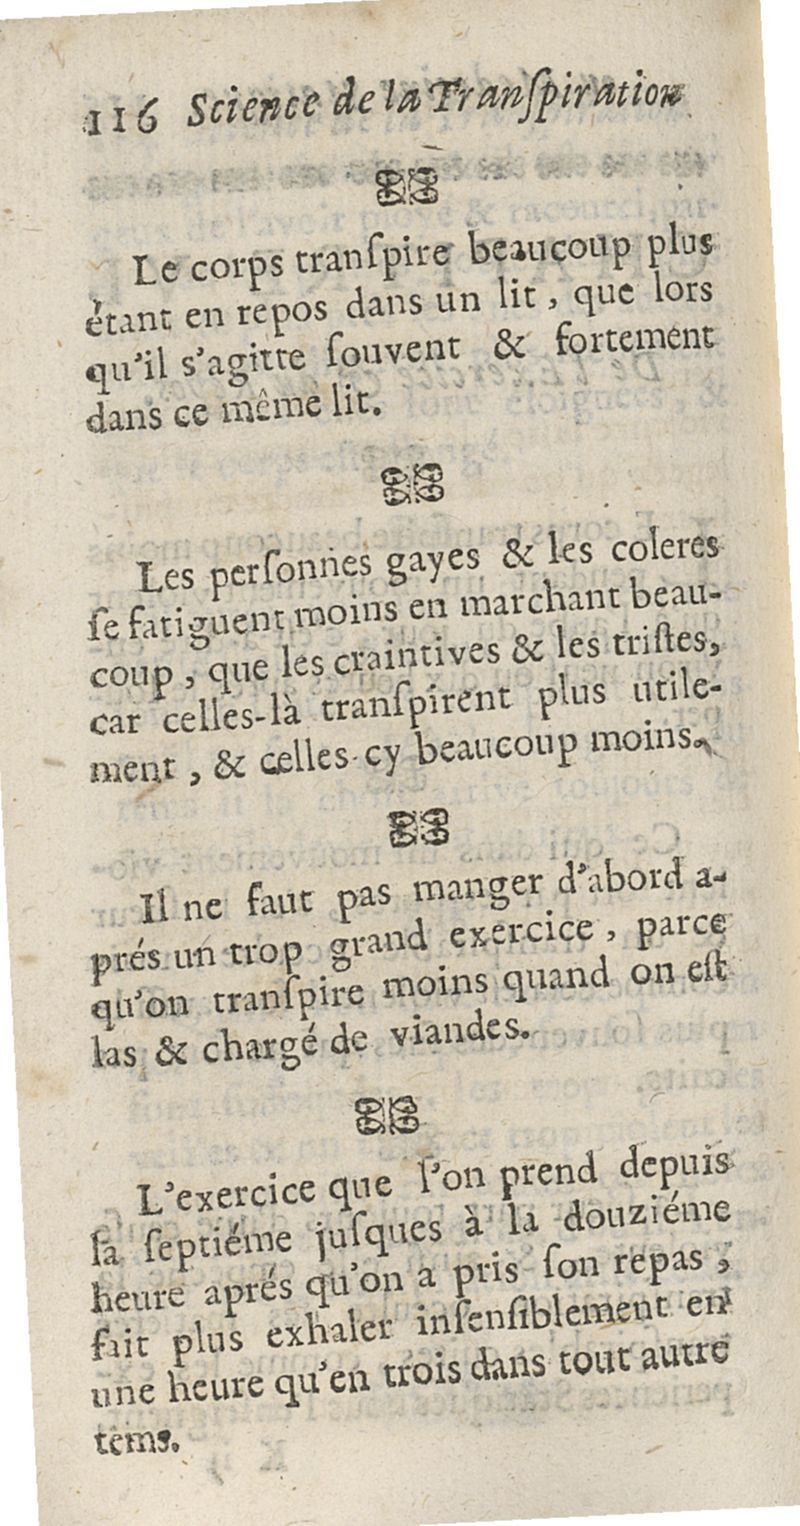 116 Science de la Tranſpiration
Le corps tranſpire beaucoup plus
étant en repos dans un lit, que lors
qu'il s'agitte ſouvent & fortement
dans ce même lit.
Les perſonnes gayes & les coleres
ſe fatiguent moins en marchant beau-
coup, que les craintives & les triſtes,
car celles-là tranſpirent plus utile-
ment, & celles-cy beaucoup moins.
Il ne faut pas manger d'abord a-
prés un trop grand exercice, parce
qu'on tranſpire moins quand on eſt
las & chargé de viandes.
L'exercice que l'on prend depuis
ſa ſeptiéme juſques à la douziéme
heure aprés qu'on a pris ſon repas,
fait plus exhaler inſenſiblement en
une heure qu'en trois dans tout autre
tems.